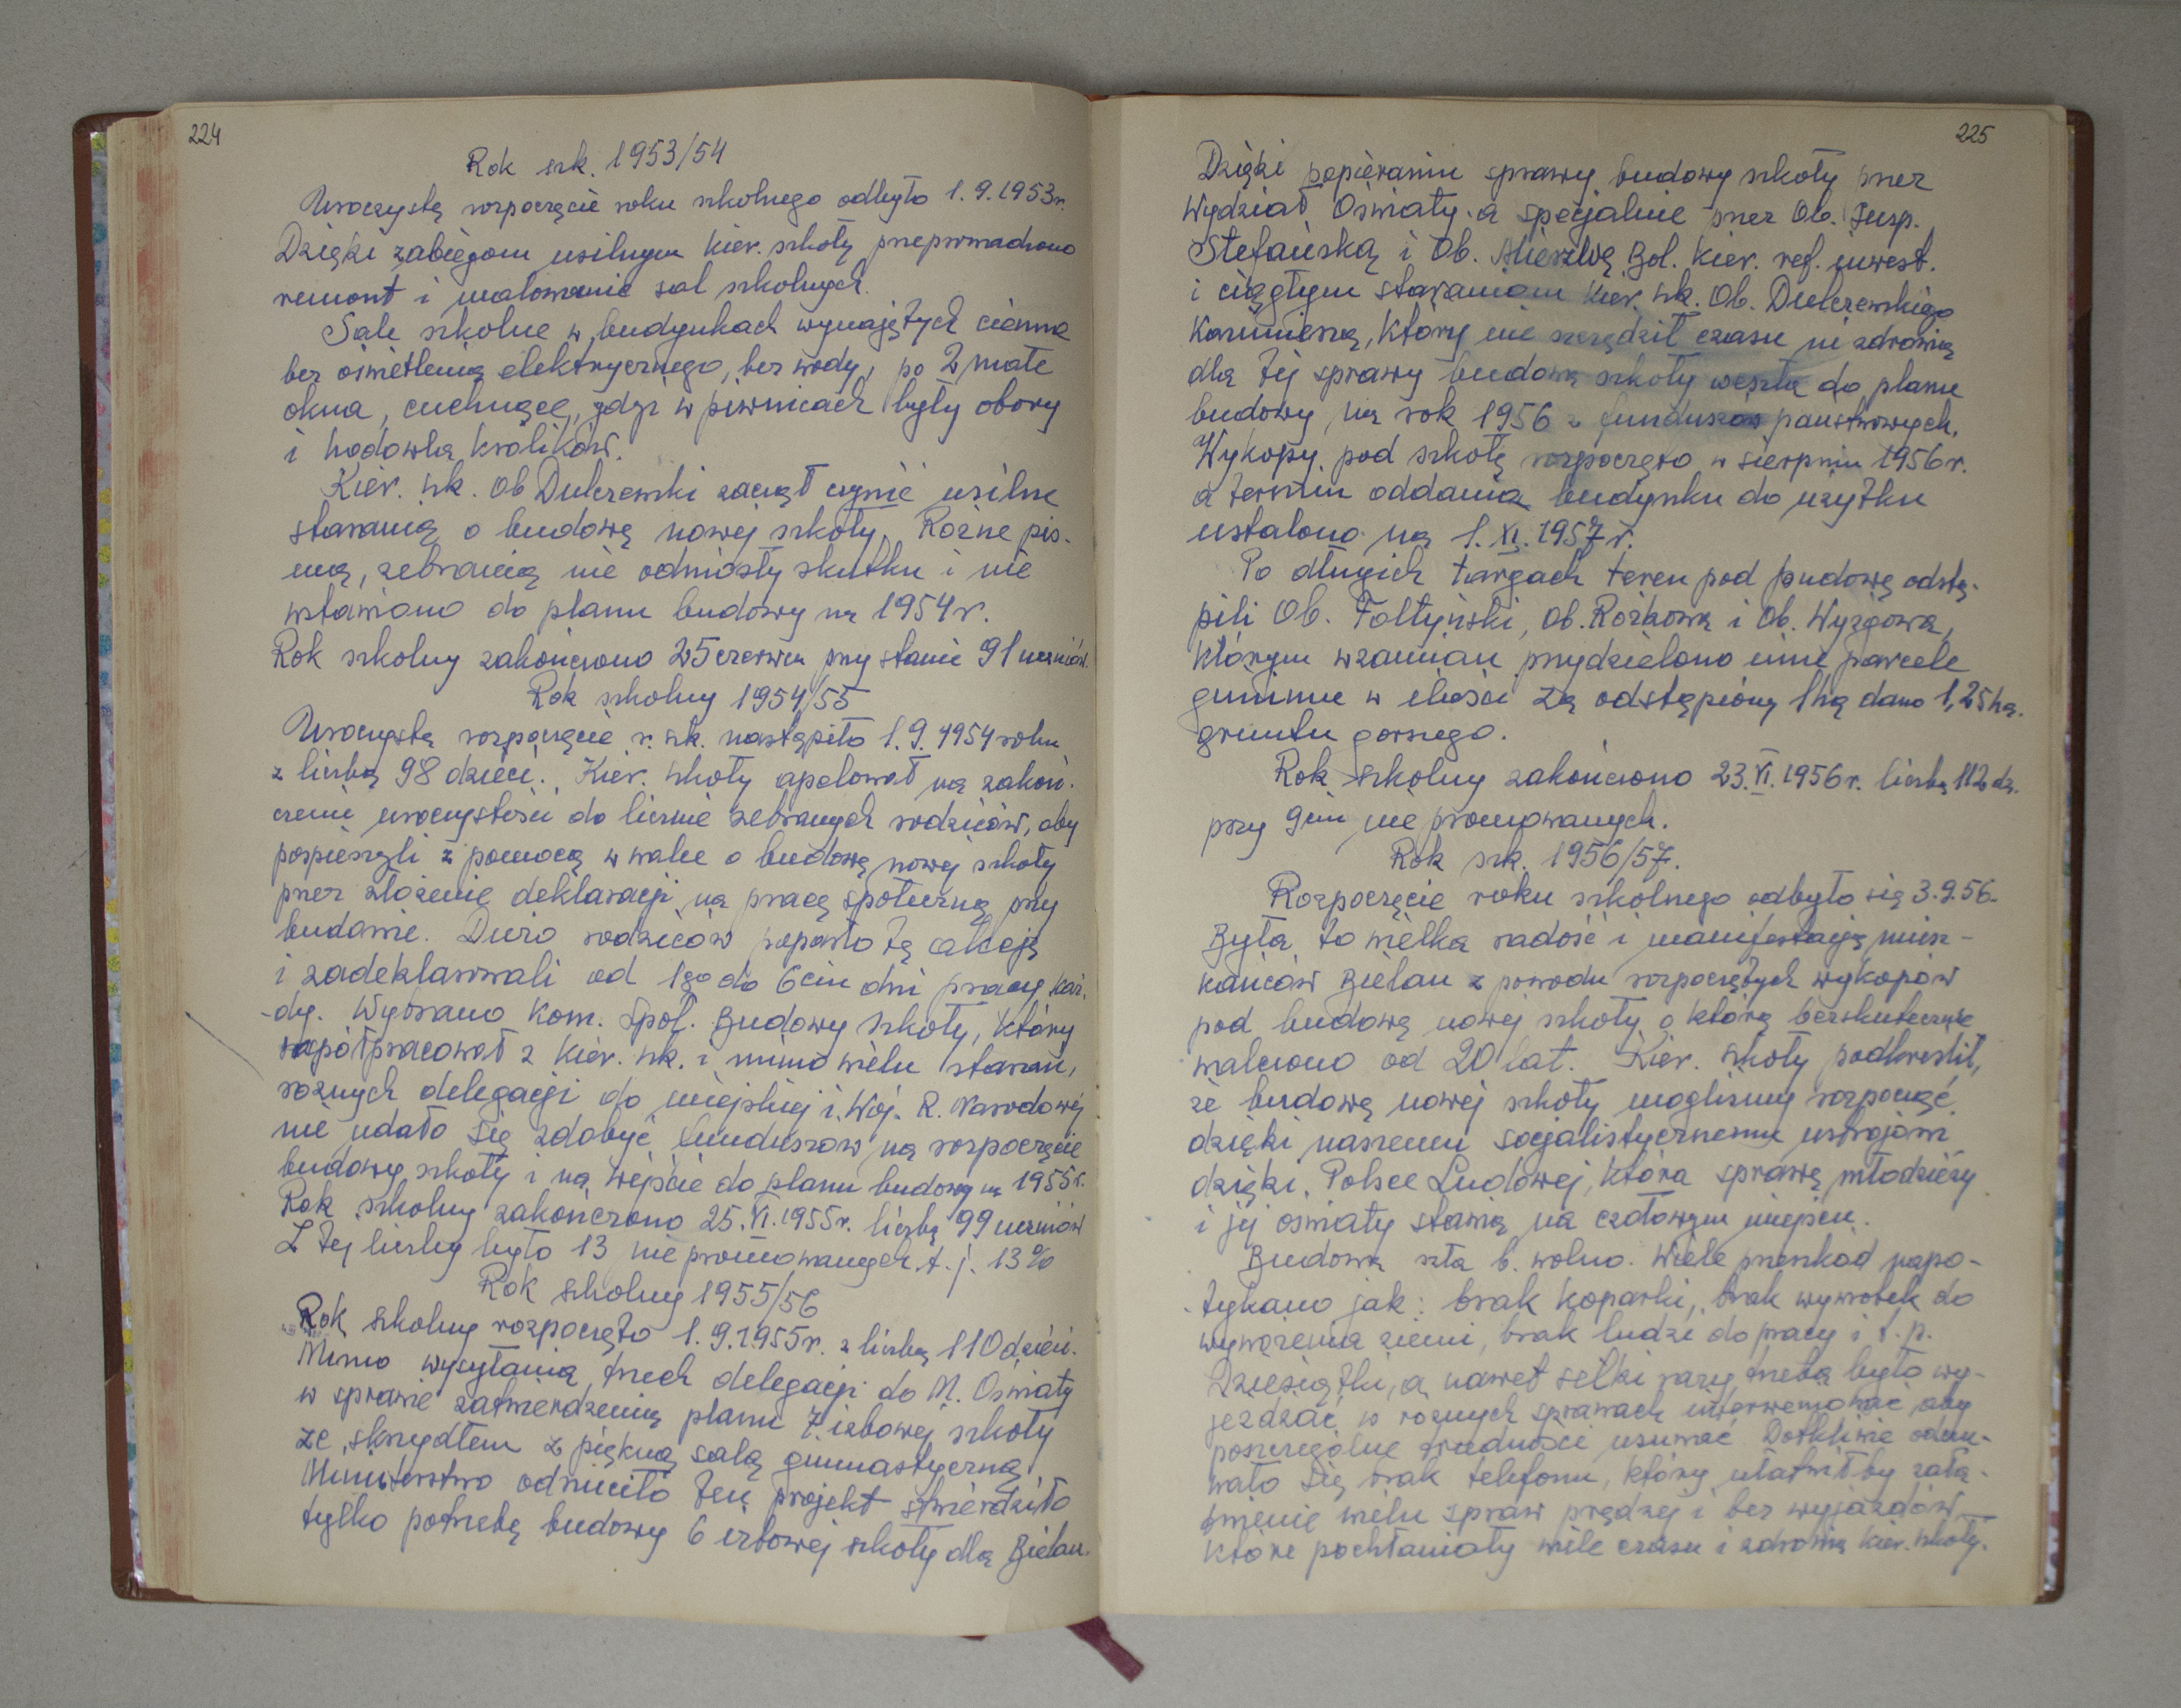 224
Rok szk. 1953/54
Uroczystę rozpoczęcie roku szkolnego odbyto 1.9.1953r.
Dzięki zabiegom usilnym kier. szkoły przeprowadzono
remont i malowanie sal szkolnych.
Sale szkolne w budynkach wynajętych ciemne
bez oświetlenia elektrycznego, bez wody, po 2 małe
okna, cuchnące, gdyż w piwnicach były obory
i hodowla królików.
Kier. szk. Ob Dulczewski zaczął czynić usilne
starania o budowę nowej szkoły. Różne pis-
ma, zebrania nie odniosły skutku i nie
wstawiono do planu budowy na 1954 r.
Rok szkolny zakończono 25 czerwca przy stanie 91 uczniów.
Rok szkolny 1954/55
Uroczyste rozpoczęcie r. szk. nastąpiło 1.9.1954 roku
z liczbą 98 dzieci. Kier. szkoły apelował na zakoń-
czenie uroczystości do licznie zebranych rodziców, aby
pospieszyli z pomocą w walce o budowę nowej szkoły
przez złożenie deklaracji na pracę społeczną przy
budowie. Dużo rodziców poparło tę akcję
i zadeklarowali od 1go do 6ciu dni pracy każ-
dy. Wybrano Kom. Społ. Budowy Szkoły, który
współpracował z kier. szk. i mimo wielu starań,
różnych delegacji do miejskiej i Woj. R. Narodowej
nie udało się zdobyć funduszów na rozpoczęcie
budowy szkoły i na wejście do planu budowy na 1955 r.
Rok szkolny zakończono 25.VI.1955r. liczbą 99 uczniów
Z tej liczby było 13 nie promowanych t.j. 13%
Rok szkolny 1955/56
Rok szkolny rozpoczęto 1.9.1955r. z liczbą 110 dzieci.
Mimo wysyłania trzech delegacji do M. Oświaty
w sprawie zatwierdzenia planu 7 izbowej szkoły
ze skrzydłem z piękną salą gimnastyczną
Ministerstwo odrzuciło ten projekt stwierdziło
tylko potrzebę budowy 6 izbowej szkoły dla Bielan.
225
Dzięki popieraniu sprawy budowy szkoły przez
Wydział Oświaty a specjalnie przez Ob. Insp.
Stefańską i Ob. Mierzwę Bol. Kier. ref. inwest.
i ciągłym staraniom kier. szk. Ob. Dulczewskiego
Kazimierza, który nie szczędził czasu ni zdrowia
dla tej sprawy budowa szkoły weszła do planu
budowy na rok 1956 z funduszów państwowych.
Wykopy pod szkołę rozpoczęto w sierpniu 1956 r.
a termin oddania budynku do użytku
ustalono na 1.XI.1957 r.
Po długich targach teren pod budowę odstą-
pili Ob. Foltyński, Ob. Rożkowa i Ob. Wyzgowa,
którym wzamian przydzielono inne parcele
gminne w ilości za odstąpiony 1 ha dano 1,25 ha.
gruntu gorszego.
Rok szkolny zakończono 23.VI.1956 r. liczbą 112 dz.
przy 9ciu nie promowanych.
Rok szk. 1956/57.
Rozpoczęcie roku szkolnego odbyło się 3.9.56.
Była to wielka radość i manifestacja miesz-
kańców Bielan z powodu rozpoczętych wykopów
pod budowę nowej szkoły o którą bezskutecznie
walczono od 20 lat. Kier. szkoły podkreślił,
że budowę nowej szkoły mogliśmy rozpocząć
dzięki naszemu socjalistycznemu ustrojowi
dzięki Polsce Ludowej, która sprawę młodzieży
i jej oświaty stawia na czołowym miejscu.
Budowa szła b. wolno. Wiele przeszkód napo-
tykano jak: brak koparki, brak wywrotek do
wywożenia ziemi, brak ludzi do pracy i t.p.
Dziesiątki, a nawet setki razy trzeba było wy-
jeżdżać w różnych sprawach interweniować aby
poszczególne trudności usuwać Dotkliwie odczu-
wało się brak telefonu, który ułatwiłby zała-
twienie wielu spraw prędzej i bez wyjazdów
które pochłaniały wiele czasu i zdrowia kier. szkoły.